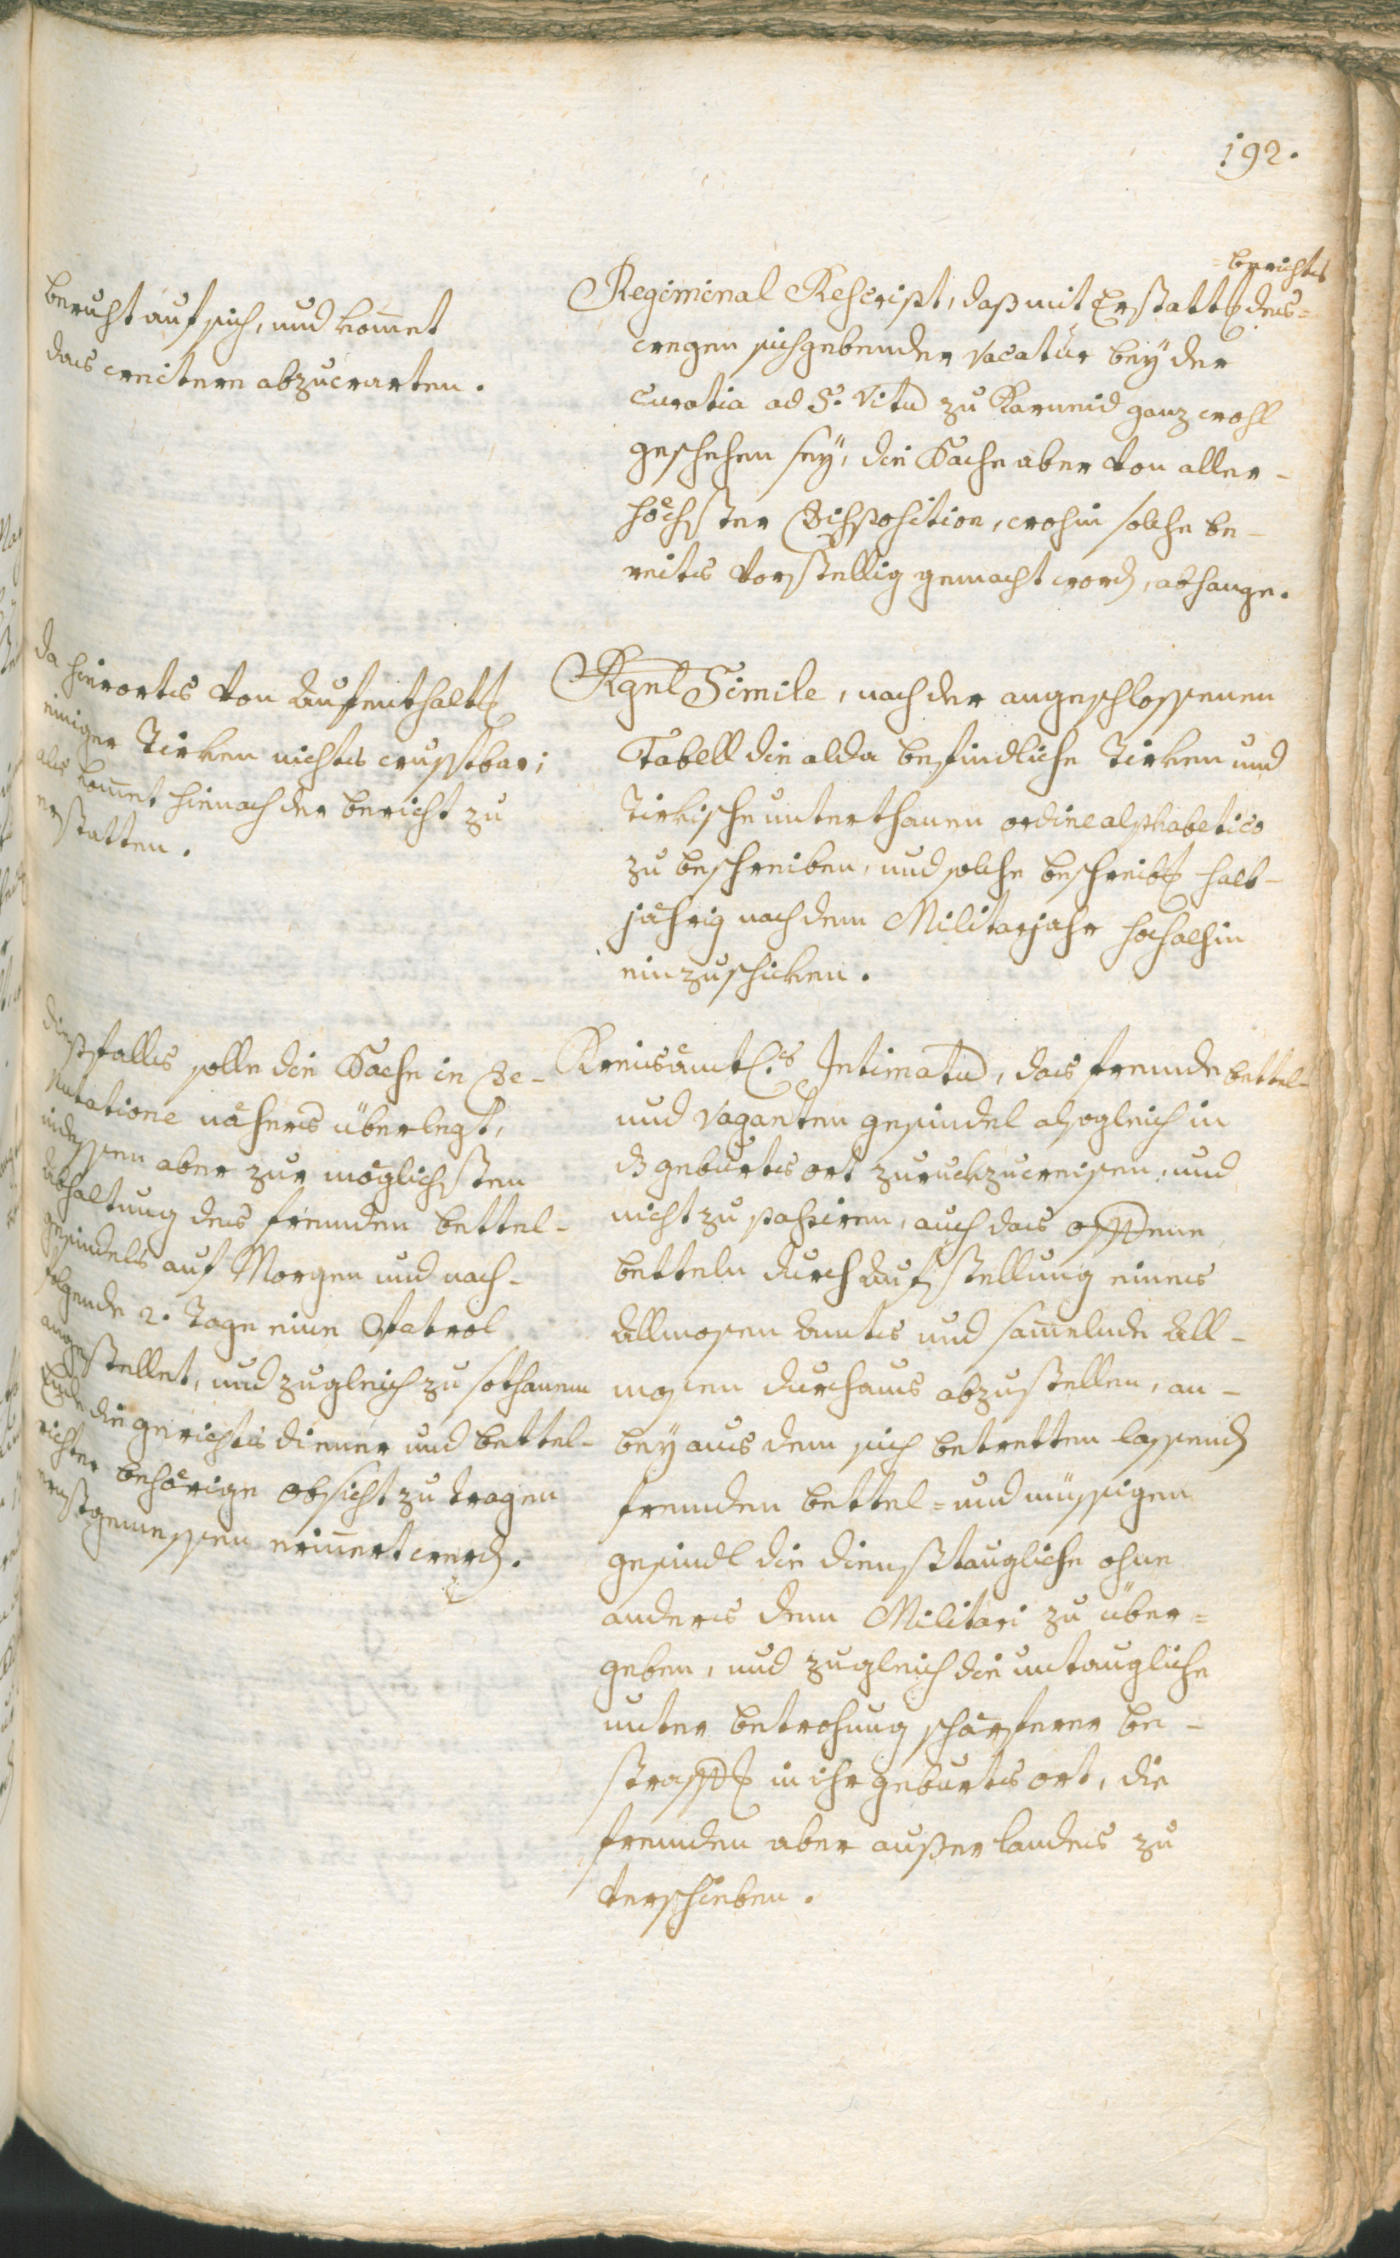 192.
beruht auf sich, und kom̅et
das weitere abzuwarten.
berichts
Regiminal Rescript, daß mit Erstattg des=
wegen sichgebender vacatur beÿ der
Curatia ad S. Vitu̅ zu Karneid ganz wohl
geschehen seÿ, die Sache aber von aller-
höchster Disposition, wohin solche be-
reits vorstellig gemacht word, abhange.
da hierorts von Aufenthaltg
einiger Tirken nichts wusstbar;
als kom̅et hienach der bericht zu
erstatten.
Rgnl Simile, nach der angeschlossenen
Tabell die alda befindliche Tirken und
Tirkische unterthanen ordine alphabetico
zu beschreiben, und solche beschreibg halb-
jährig nach dem Militarjahr hochalhin
einzuschicken.
dießfalls solle die Sache in De-
putatione nähers überlegt,
indessen aber zur möglichsten
abhaltung des fremden bettel-
gesindels auf Morgen und nach-
folgende 2. Tage eine Patrol
angestellet, und zugleich zu sothanem
Ende die gerichts diener und bettel-
richter behörige obsicht zu tragen
ernstgemessen erin̅ert werd.
Kreisämtl.s Intimatu̅, das fremde bettel-
und Vaganten gesindel alsogleich in
ihr geburts ort zuruckzuweisen, und
nicht zu passiren, auch das offene
betteln durch Aufstellung eines
Allmosen Amts und sam̅elnde All-
mosen durchaus abzustellen, an-
beÿ aus dem sich betretten lassend
fremden bettel- und müssigen
gesindl die diensttaugliche ohne
anders dem Militari zu über=
geben, und zugleich die untaugliche
unter betrohung schärferer be-
straffg in ihr geburts ort, die
fremden aber außer landes zu
verschieben.